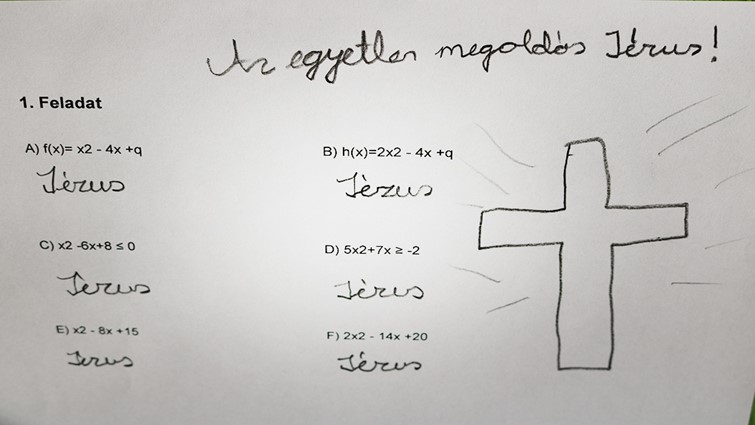 Az egyetlen megoldás Jézus!
1. Feladat
A) f(x)= x2 - 4x +q
Jézus
B) h(x)=2x2 - 4x +q
Jézus
C) x2 -6x+8 ≤ 0
Jézus
D) 5x2+7x ≥ -2
Jézus
E) x2 - 8x +15
Jézus
F) 2x2 - 14x +20
Jézus